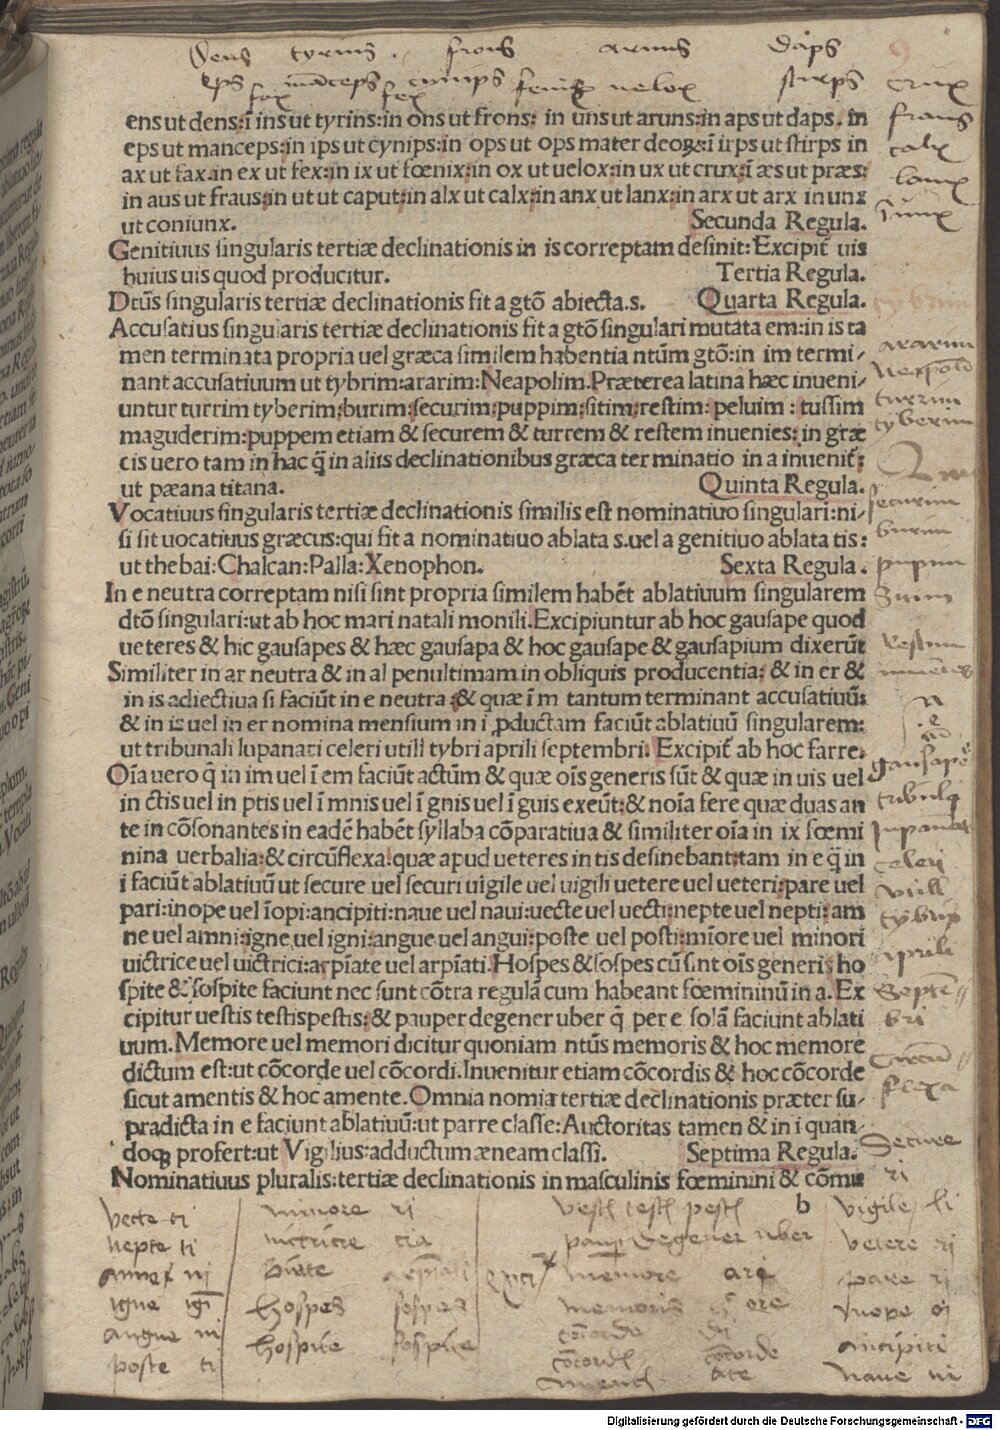 Dens tyrins . frons aruns daps
eps manceps cynips fenix velox stirps crux
fax fex
ens ut dens:ī ins ut tyrins:in ons ut frons: in uns ut aruns:in aps ut daps. in
eps ut manceps:in ips ut cynips:in ops ut ops mater deoꝝ:ī irps ut stirps in
ax ut fax.in ex ut fex:in ix ut fœnix:in ox ut uelox:in ux ut crux:ī æs ut præs:
in aus ut fraus:in ut ut caput:in alx ut calx:in anx ut lanx:in arx ut arx in unx
ut coniunx. Secunda Regula.
Genitiuus singularis tertiæ declinationis in is correptam desinit:Excipit̄ uis
huius uis quod producitur. Tertia Regula.
Dtūs singularis tertiæ declinationis fit a gtō abiecta.s. Quarta Regula.
Accusatius singularis tertiæ declinationis fit a gtō singulari mutata em:in is ta
men terminata propria uel græca similem habentia ntūm gtō:in im termi/
nant accusatiuum ut tybrim:ararim:Neapolim.Præterea latina hæc inueni/
untur turrim tyberim:burim:securim:puppim:sitim:restim: peluim : tussim
maguderim:puppem etiam & securem & turrem & restem inuenies: in græ
cis uero tam in hac q̄ in aliis declinationibus græca terminatio in a inuenit̄:
ut pæana titana. Quinta Regula.
Vocatiuus singularis tertiæ declinationis similis est nominatiuo singulari:ni/
si sit uocatiuus græcus:qui fit a nominatiuo ablata s.uel a genitiuo ablata tis:
ut thebai:Chalcan:Palla:Xenophon. Sexta Regula.
In e neutra correptam nisi sint propria similem habēt ablatiuum singularem
dtō singulari:ut ab hoc mari natali monili.Excipiuntur ab hoc gausape quod
ueteres & hic gausapes & hæc gausapa & hoc gausape & gausapium dixerūt
Similiter in ar neutra & in al penultimam in obliquis producentia: & in er &
in is adiectiua si faciūt in e neutra :& quæ ī m tantum terminant accusatiuū:
& in is uel in er nomina mensium in i ꝓductam faciūt ablatiuū singularem:
ut tribunali lupanari celeri utili tybri aprili septembri. Excipit̄ ab hoc farre.
Oīa uero q̄ in im uel ī em faciūt actūm & quæ oīs generis sūt & quæ in uis uel
in ctis uel in ptis uel ī mnis uel ī gnis uel ī guis exeūt:& noīa fere quæ duas an
te in cōsonantes in eadē habēt syllaba cōparatiua & similiter oīa in ix fœmi
nina uerbalia:& circūflexa:quæ apud ueteres in tis desinebant:tam in e q̄ in
i faciūt ablatiuū ut secure uel securi uigile uel uigili uetere uel ueteri:pare uel
pari:inope uel īopi:ancipiti:naue uel naui:uecte uel uecti:nepte uel nepti:am
ne uel amni:igne uel igni:angue uel angui:poste uel posti:mīore uel minori
uictrice uel uictrici:arpīate uel arpīati.Hospes & sospes cū sint oīs generis ho
spite & sospite faciunt nec sunt cōtra regulā cum habeant fœmininū in a. Ex
cipitur uestis testis pestis:& pauper degener uber q̄ per e solā faciunt ablati
uum.Memore uel memori dicitur quoniam ntūs memoris & hoc memore
dictum est:ut cōcorde uel cōcordi.Inuenitur etiam cōcordis & hoc cōcorde
sicut amentis & hoc amente.Omnia nomīa tertiæ declinationis præter su/
pradicta in e faciunt ablatiuū:ut parre classe:Auctoritas tamen & in i quan/
doqȝ profert:ut Vigilius:adductum æneam classi. Septima Regula.
Nominatiuus pluralis:tertiæ declinationis in masculinis fœminini & cōmu
b
crux
fraus
calx
lanx
ararim
turrim
tyberim
securim
burim
gausape
celeri
aprile
Septē//
bri
flexa
Secure
ri
vecte ti
nepte ti
igne
angue ni
poste ti
minore ri
hospes sospes
hospite sospite
degener uber
memore
memoris
vigile li
vetere ri
pare ri
ancipiti
naue ni
Digitalisierung gefördert durch die Deutsche Forschungsgemeinschaft - DFG